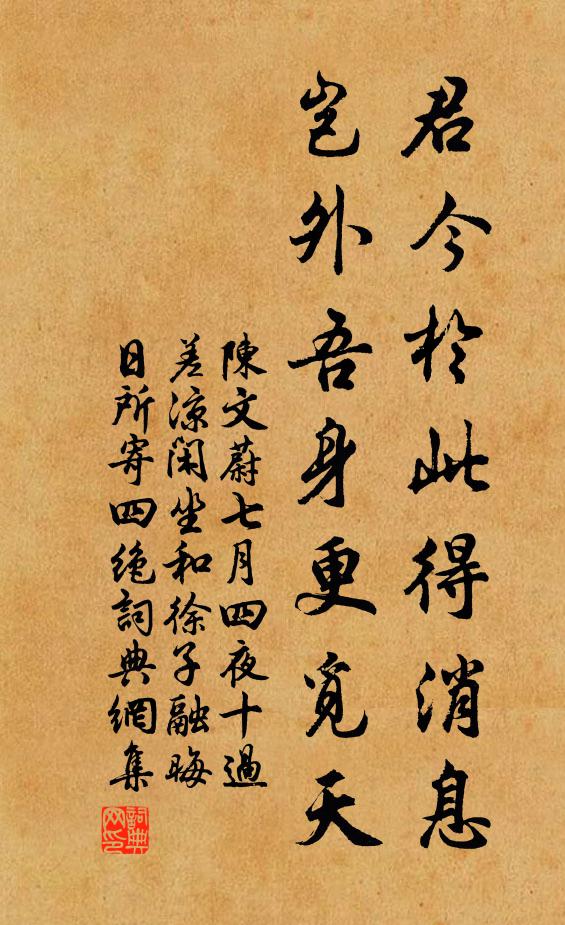 君今於此得消息
豈外吾身更覓天
陳文蔚七月四夜十過
差涼閑坐和徐子融晦
日所寄四絕詞典網集
詞典
网印